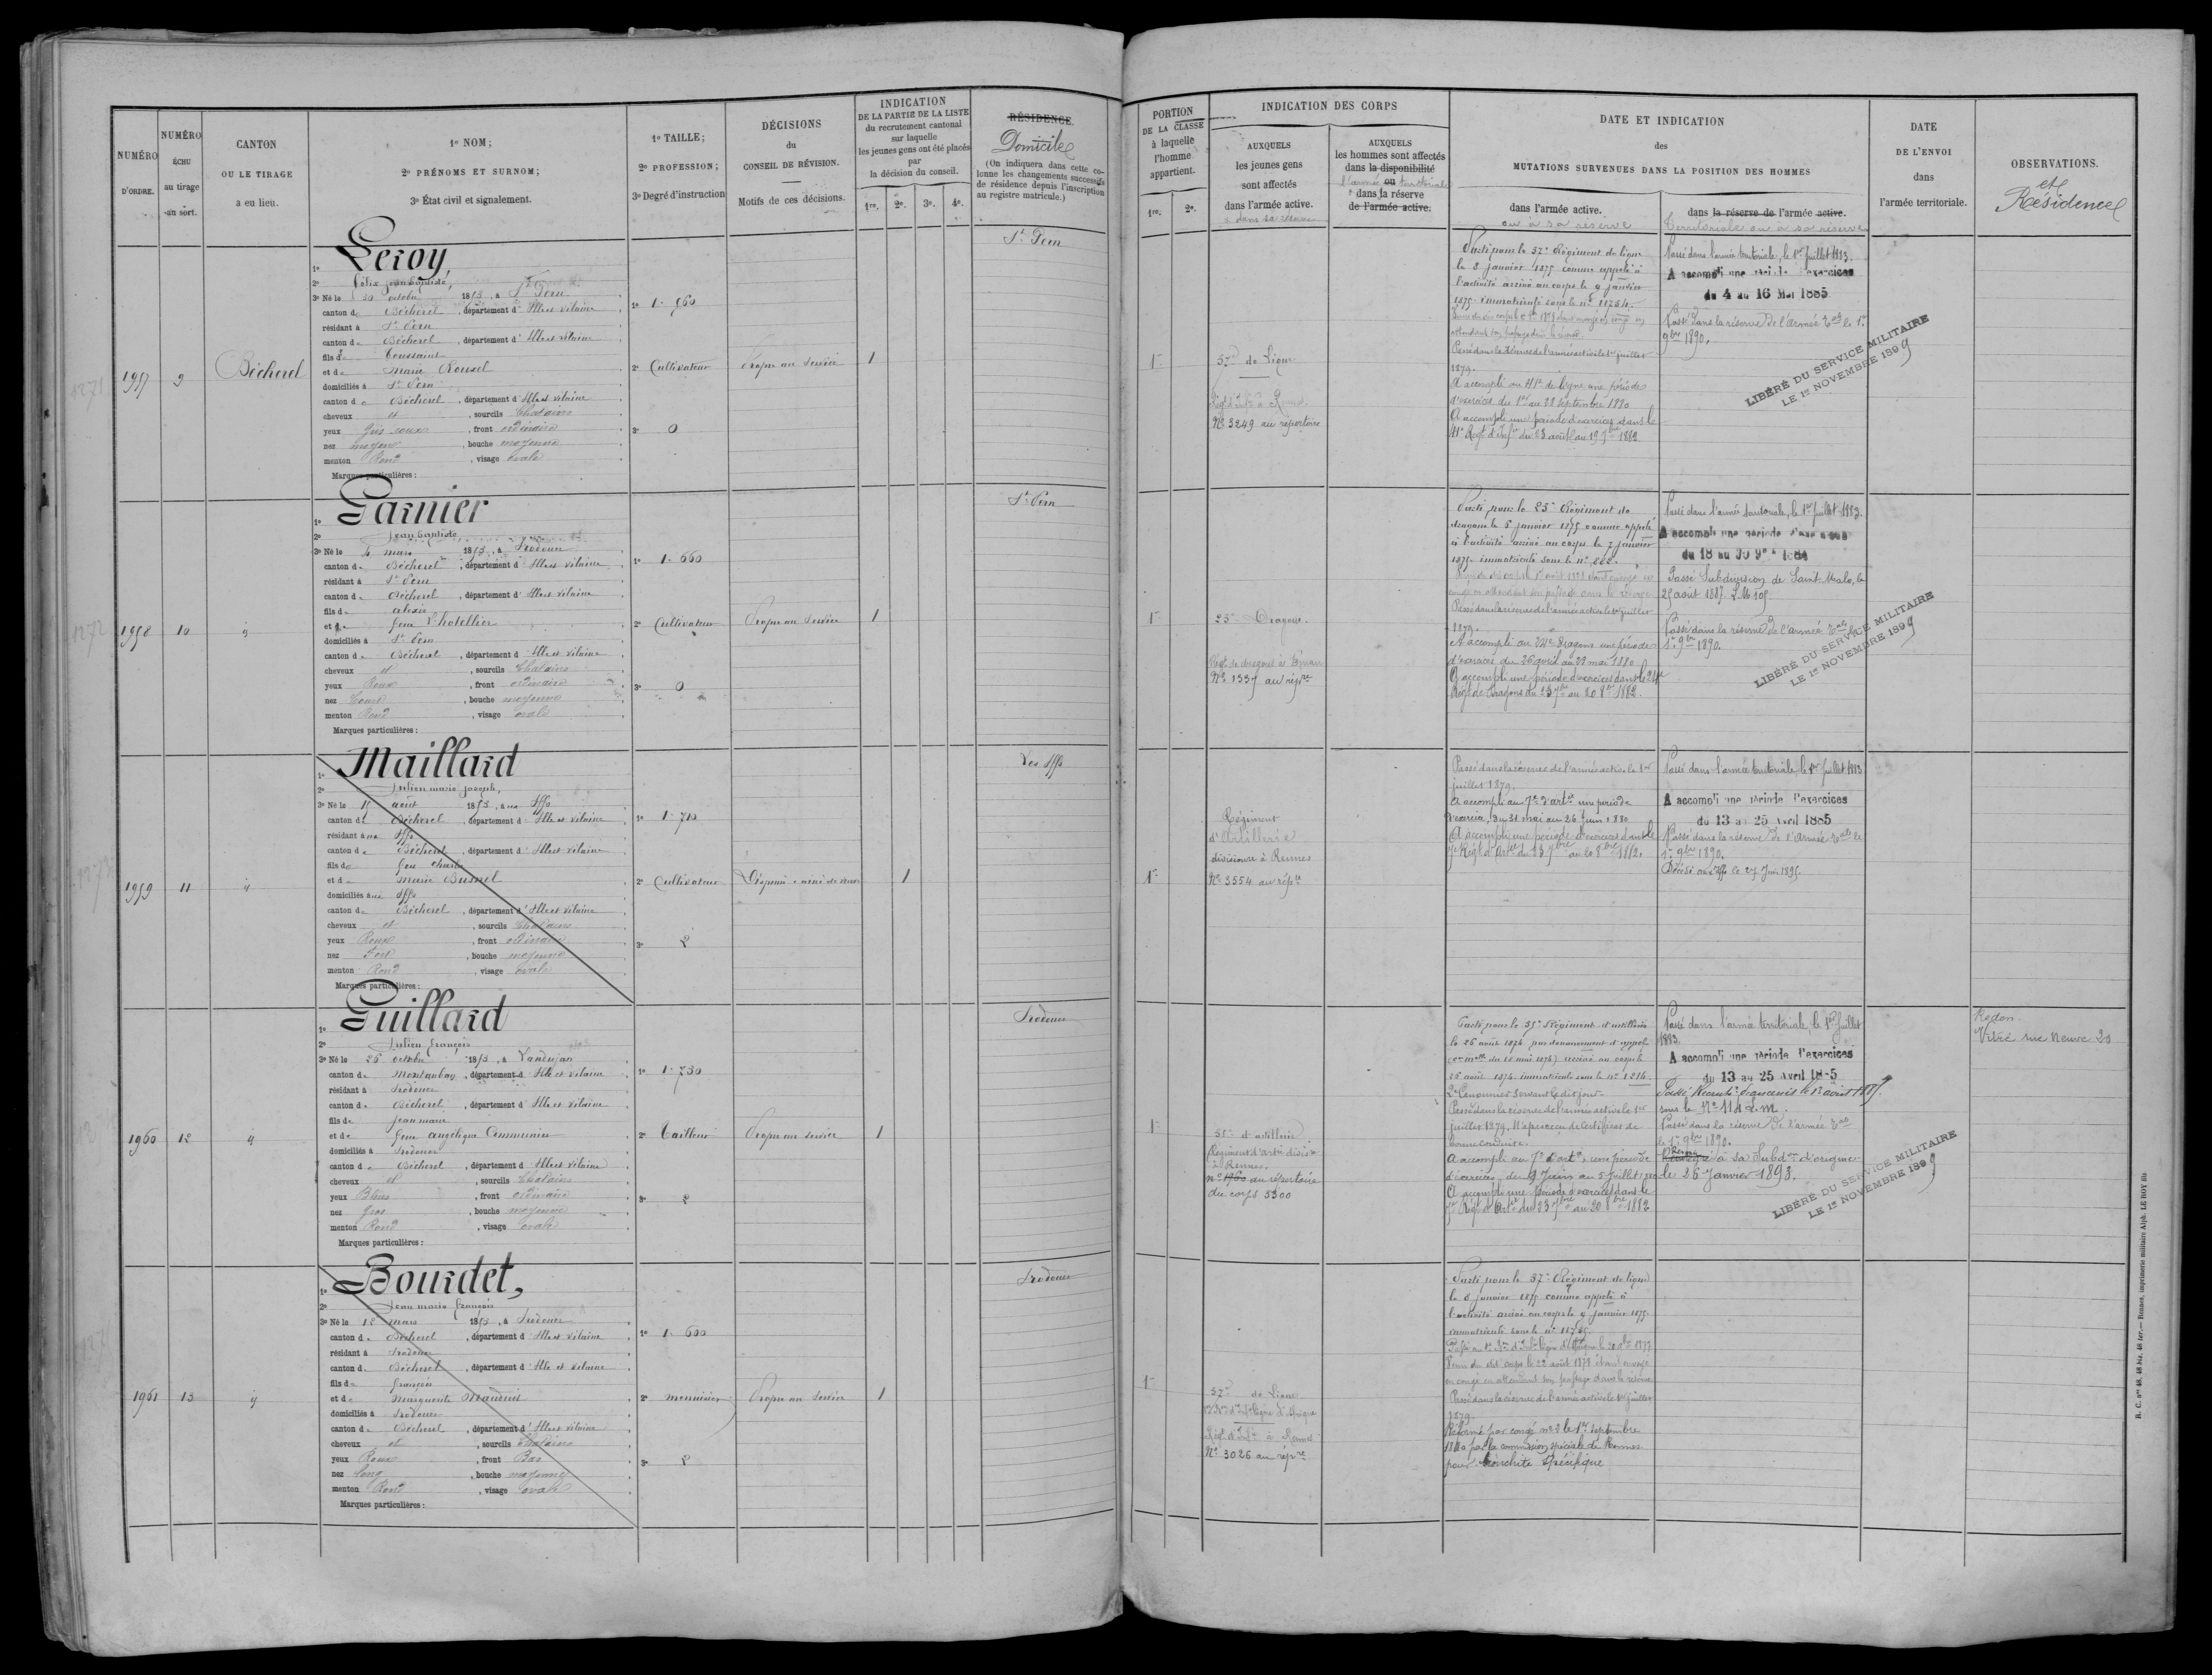 NUMÉRO D'ORDRE.
NUMÉRO ÉCHU au tirage au sort.
CANTON OU LE TIRAGE a eu lieu.
1º NOM;
2º PRÉNOMS ET SURNOM;
3º État civil et signalement.
1º TAILLE;
2º PROFESSION;
3º Degré d'instruction
DÉCISIONS du CONSEIL DE RÉVISION.
Motifs de ces décisions.
INDICATION DE LA PARTIE DE LA LISTE du recrutement cantonal sur laquelle les jeunes gens ont été placés par la décision du conseil.
1re. 2e. 3e. 4e.
RÉSIDENCE.
Domicile
(On indiquera dans cette colonne les changements successifs de résidence depuis l'inscription au registre matricule.)
PORTION DE LA CLASSE à laquelle l'homme appartient.
1re. 2e.
INDICATION DES CORPS
AUXQUELS les jeunes gens sont affectés dans l'armée active.
& dans sa réserve
AUXQUELS les hommes sont affectés dans la disponibilité ou dans la réserve de l'armée active.
l'armée territoriale
DATE ET INDICATION des MUTATIONS SURVENUES DANS LA POSITION DES HOMMES
dans l'armée active.
ou à sa réserve
dans la réserve de l'armée active.
Territoriale ou à sa réserve
DATE DE L'ENVOI dans l'armée territoriale.
OBSERVATIONS.
et Résidence
1957
9
Bécherel
1º Leroy,
2º Félix Jean Baptiste,
3º Né le 30 octobre 1853, à St Pern
canton de Bécherel, département d'Ille et Vilaine
résidant à St Pern
canton de Bécherel, département d'Ille et Vilaine
fils de Toussaint
et de Marie Rouxel
domiciliés à St Pern
canton de Bécherel, département d'Ille et Vilaine
cheveux et, sourcils Chatains
yeux Gris roux, front ordinaire
nez moyen, bouche moyenne
menton Rond, visage ovale
Marques particulières :
1º 1.560
2º Cultivateur
3º 0
Propre au service
1
St Pern
1re
37e de Ligne
Régt d'Infie à Rennes
Nº 3249 au répertoire
Parti pour le 37e Régiment de ligne
le 8 janvier 1875 comme appelé à
l'activité arrivé au corps le 9 janvier
1875 immatriculé sous le nº 11254.
Passé dans la réserve de l'armée active le 1er juillet
1879.
A accompli au 41e de ligne une période
d'exercices du 1er au 28 septembre 1880
A accompli une période d'exercices dans le
41e Régt d'Infie du 23 août au 19 7bre 1882.
Passé dans l'armée territoriale, le 1er Juillet 1883.
A accompli une période d'exercices
du 4 au 16 Mai 1885
Passé dans la réserve de l'armée Tale le 1er
9bre 1890.
LIBÉRÉ DU SERVICE MILITAIRE
LE 1er NOVEMBRE 1899
1958
10
1º Garnier
2º Jean Baptiste
3º Né le 4 mars 1853, à Irodouer
canton de Bécherel, département d'Ille et Vilaine
résidant à St Pern
canton de Bécherel, département d'Ille et Vilaine
fils de Alexis
et de feue L'hotellier
domiciliés à St Pern
canton de Bécherel, département d'Ille et Vilaine
cheveux et, sourcils Chatains
yeux Roux, front ordinaire
nez Court, bouche moyenne
menton Rond, visage ovale
Marques particulières :
1º 1.660
2º Cultivateur
3º 0
Propre au service
1
St Pern
1re
25e Dragons.
Régt de dragons à Dinan
Nº 1337 au répre
Parti pour le 25e Régiment de
dragons le 5 janvier 1875 comme appelé
à l'activité arrivé au corps le 7 janvier
1875 immatriculé sous le nº 882.
Passé dans la réserve de l'armée active le 1er juillet
1879.
A accompli au 24e Dragons une période
d'exercices du 26 avril au 23 mai 1880
A accompli une période d'exercices dans le 24e
Régt de Dragons du 23 7bre au 20 8bre 1882.
Passé dans l'armée territoriale, le 1er Juillet 1883.
A accompli une période d'exercices
du 18 au 30 9bre 1884
Passé Subdivision de Saint Malo, le
25 août 1887
Passé dans la réserve de l'armée Tale le
1er 9bre 1890.
LIBÉRÉ DU SERVICE MILITAIRE
LE 1er NOVEMBRE 1899
1959
11
1º Maillard
2º Julien Marie Joseph,
3º Né le 15 août 1853, à aux Iffs
canton de Bécherel, département d'Ille et Vilaine
résidant aux Iffs
canton de Bécherel, département d'Ille et Vilaine
fils de feu Charles
et de Marie Busnel
domiciliés aux Iffs
canton de Bécherel, département d'Ille et Vilaine
cheveux et, sourcils Chatains
yeux Roux, front ordinaire
nez Fort, bouche moyenne
menton Rond, visage ovale
Marques particulières :
1º 1.710
2º Cultivateur
3º 2
Dispensé
1
Les Iffs
1re
Régiment
d'Artillerie
divisionre à Rennes
Nº 3554 au répre
Passé dans la réserve de l'armée active le 1er
juillet 1879.
A accompli au 7e d'artie une période
d'exercices, du 31 mai au 26 Juin 1880
A accompli une période d'exercices dans le
7e Régt d'Artie du 23 7bre au 20 8bre 1882.
Passé dans l'armée territoriale, le 1er Juillet 1883
A accompli une période d'exercices
du 13 au 25 Avril 1885
Passé dans la réserve de l'Armée Tale le
1er 9bre 1890.
Décédé aux Iffs le 27 Juin 1895.
1960
12
1º Guillard
2º Julien François
3º Né le 26 octobre 1853, à Landujan
canton de Montauban, département d'Ille et Vilaine
résidant à Irodouer
canton de Bécherel, département d'Ille et Vilaine
fils de Jean Marie
et de feue Angélique Communier
domiciliés à Irodouer
canton de Bécherel, département d'Ille et Vilaine
cheveux et, sourcils Chatains
yeux Bleus, front ordinaire
nez Gros, bouche moyenne
menton Rond, visage ovale
Marques particulières :
1º 1.730
2º Tailleur
3º 2
Propre au service
1
Irodouer
1re
35e d'artillerie
Régiment d'artie divisre
à Rennes.
nº 1760 au répertoire
du corps 3300
Parti pour le 35e Régiment d'artillerie
le 26 août 1874 par devancement d'appel
26 août 1874 immatriculé sous le nº 1214.
2e Canonnier servant le dit jour
Passé dans la réserve de l'armée active le 1er
juillet 1879. N'a pas reçu de certificat de
bonne conduite.
A accompli au 7e d'artie, une période
d'exercices, du 9 Juin au 5 Juillet 1880
A accompli une période d'exercices dans le
7e Régt d'Artie du 23 7bre au 20 8bre 1882
Passé dans l'armée territoriale, le 1er Juillet
1883.
A accompli une période d'exercices
du 13 au 25 Avril 1885
sous le Nº 114 L.M.
Passé dans la réserve de l'armée Tale
le 1er 9bre 1890.
à sa Subdon d'origine
le 26 Janvier 1893.
LIBÉRÉ DU SERVICE MILITAIRE
LE 1er NOVEMBRE 1899
Redon.
Vitré rue Neuve 20
1961
13
1º Bourdet,
2º Jean Marie François
3º Né le 12 mars 1853, à Irodouer
canton de Bécherel, département d'Ille et Vilaine
résidant à Irodouer
canton de Bécherel, département d'Ille et Vilaine
fils de François
et de Marguerite Mauduit
domiciliés à Irodouer
canton de Bécherel, département d'Ille et Vilaine
cheveux et, sourcils Chatains
yeux Roux, front Bas
nez long, bouche moyenne
menton Rond, visage ovale
Marques particulières :
1º 1.600
2º menuisier
3º 2
Propre au service
1
Irodouer
1re
37e de Ligne
Régt d'Infie à Rennes
Nº 3026 au répre
Parti pour le 37e Régiment de ligne
le 8 janvier 1875 comme appelé à
l'activité arrivé au corps le 9 janvier 1875
en congé en attendant son passage dans la réserve
Passé dans la réserve de l'armée active le 1er juillet
1879.
Réformé par congé nº 2 le 1er septembre
1880 par la commission spéciale de Rennes
pour bronchite spécifique
R. C. nos 48, 48 bis, 48 ter. — Rennes, imprimerie militaire Alph. LE ROY fils